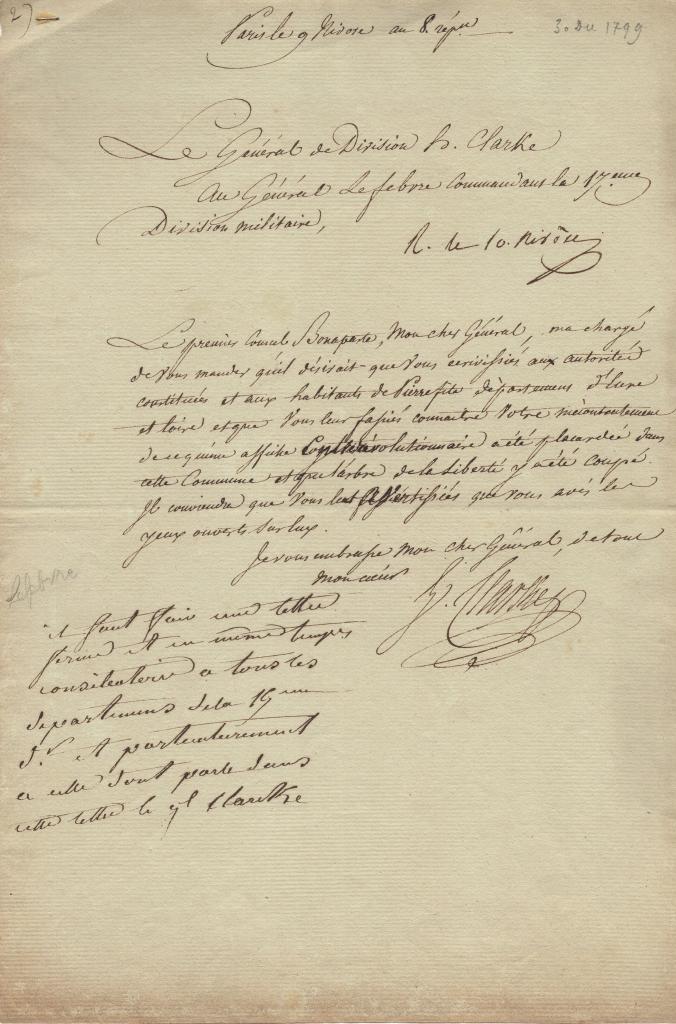 2)
Paris le 9 Nivose an 8. répu
30 Du 1799
Le Général de Division h. Clarke
Au Général Lefebvre Commandant la 17.eme
Division militaire,
R. le 10. Nivôse
Le premier Consul Bonaparte, Mon cher Général, ma chargé
de vous mander qu'il désirait que vous ecrivissiés aux autorités
constituées et aux habitants de Pierrefite département d'Eure
et Loire et que Vous leur fassiés connaitre Votre mécontentement
de ce qu'une affiche Contrerévolutionnaire a été placardée dans
cette Commune et que l'arbre de la Liberté y a été coupé.
Il conviendra que Vous les avertissiés que vous avés les
yeux ouverts sur eux.
Je vous embrasse Mon cher Général, de tout
mon cœur
H. Clarke
Lefebvre
il faut faire une lettre
ferme et en même temps
consileatoire a tous les
departemens de la 17 eme
d.on et particulierement
a celle dont parle dans
cette lettre le gl Clarcke